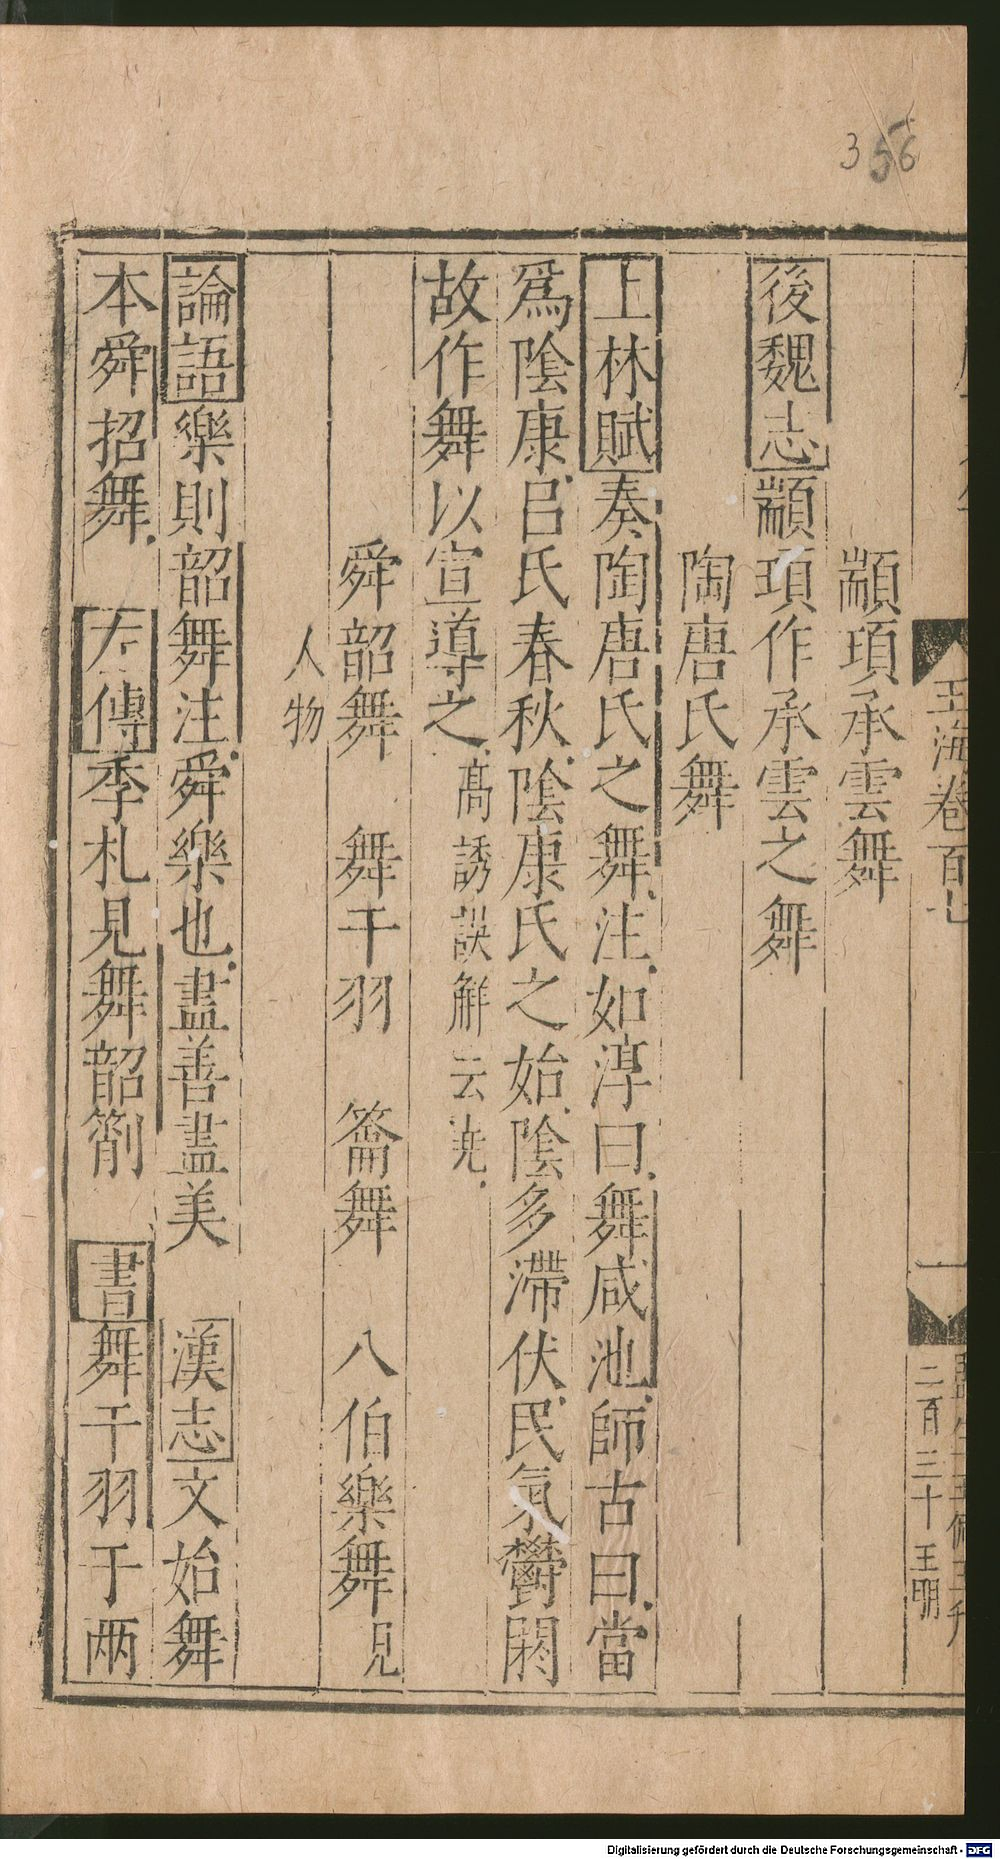 356
玉海卷百七
一
二百三十 王明
顓頊承雲舞
後魏志顓頊作承雲之舞
陶唐氏舞
上林賦奏陶唐氏之舞注如淳曰舞咸池師古曰當
爲陰康呂氏春秋陰康氏之始陰多滯伏民氣鬱閼
故作舞以宣導之高誘誤解云堯
舜韶舞 舞干羽 籥舞 八伯樂舞見
人物
論語樂則韶舞注舜樂也盡善盡美 漢志文始舞
本舜招舞 左傳季札見舞韶箾 書舞干羽于两
Digitalisierung gefördert durch die Deutsche Forschungsgemeinschaft - DFG